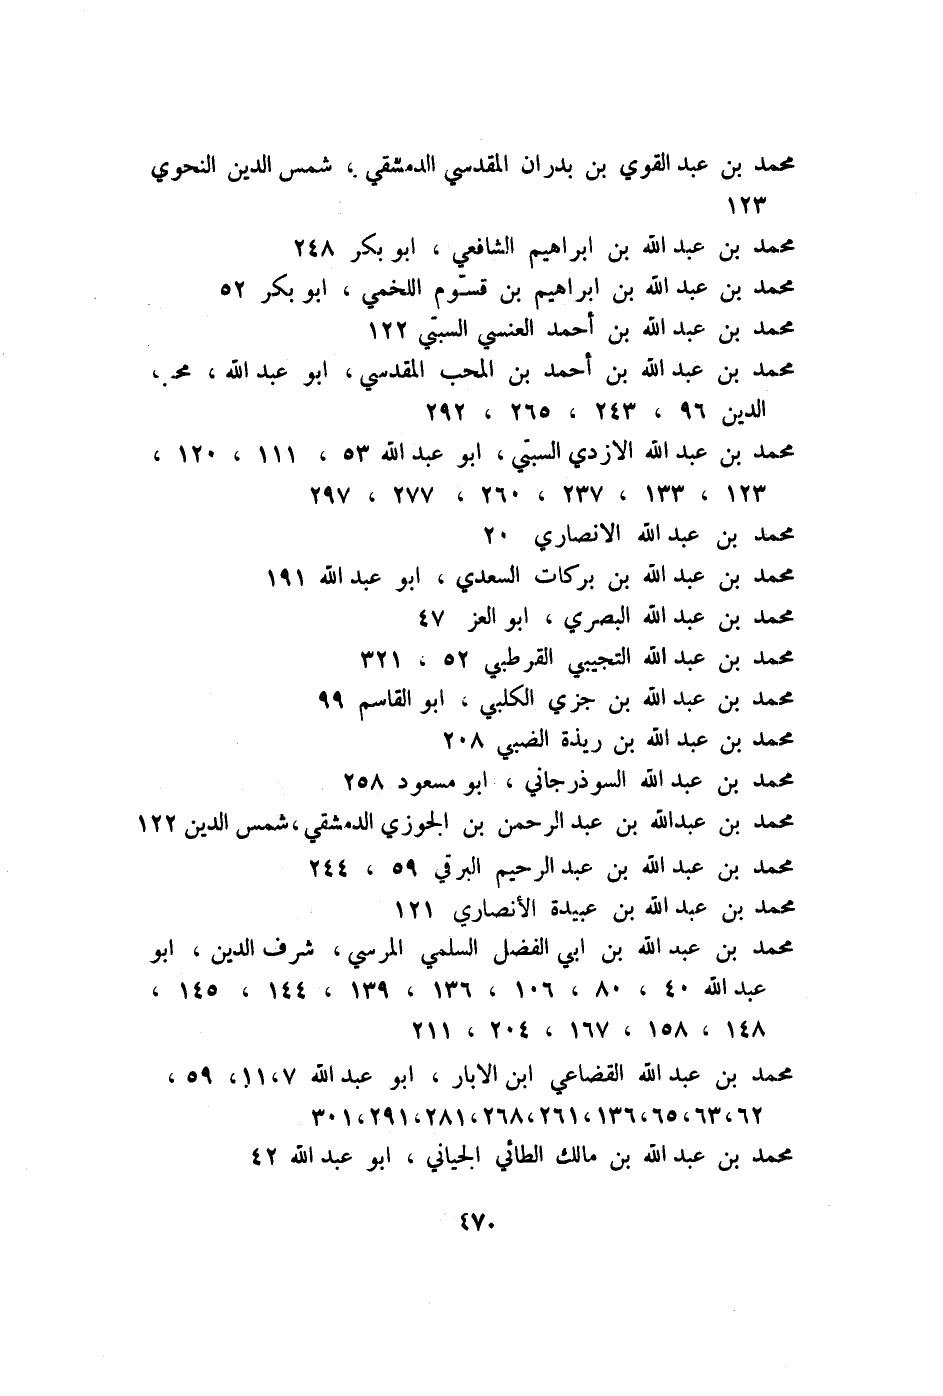 محمد بن عبد القوي بن بدران المقدسي الدمشقي ، شمس الدين النحوي
١٢٣
محمد بن عبد الله بن ابراهيم الشافعي ، ابو بكر ٢٤٨
محمد بن عبد الله بن ابراهيم بن قسّوم اللخمي ، ابو بكر ٥٢
محمد بن عبد الله بن أحمد العنسي السبتي ١٢٢
محمد بن عبد الله بن أحمد بن المحب المقدسي ، ابو عبد الله ،
الدين ٩٦ ، ٢٤٣ ، ٢٦٥ ، ٢٩٢
محمد بن عبد الله الازدي السبتي ، ابو عبد الله ٥٣ ، ١١١ ، ١٢٠ ،
١٢٣ ، ١٣٣ ، ٢٣٧ ، ٢٦٠ ، ٢٧٧ ، ٢٩٧
محمد بن عبد الله الانصاري ٢٠
محمد بن عبد الله بن بركات السعدي ، ابو عبد الله ١٩١
محمد بن عبد الله البصري ، ابو العز ٤٧
محمد بن عبد الله التجيبي القرطبي ٥٢ ، ٣٢١
محمد بن عبد الله بن جزي الكلبي ، ابو القاسم ٩٩
محمد بن عبد الله بن ريذة الضبي ٢٠٨
محمد بن عبد الله السوذرجاني ، ابو مسعود ٢٥٨
محمد بن عبدالله بن عبد الرحمن بن الجوزي الدمشقي ،شمس الدين ١٢٢
محمد بن عبد الله بن عبد الرحيم البرقي ٥٩ ، ٢٤٤
محمد بن عبد الله بن عبيدة الأنصاري ١٢١
محمد بن عبد الله بن ابي الفضل السلمي المرسي ، شرف الدين ، ابو
عبد الله ٤٠ ، ٨٠ ، ١٠٦ ، ١٣٦ ، ١٣٩ ، ١٤٤ ، ١٤٥ ،
١٤٨ ، ١٥٨ ، ١٦٧ ، ٢٠٤ ، ٢١١
محمد بن عبد الله القضاعي ابن الابار ، ابو عبد الله ٧،١١، ٥٩ ،
٦٢،٦٣،٦٥،١٣٦،٢٦١،٢٦٨،٢٨١،٢٩١،٣٠١
محمد بن عبد الله بن مالك الطائي الجياني ، ابو عبد الله ٤٢
٤٧٠